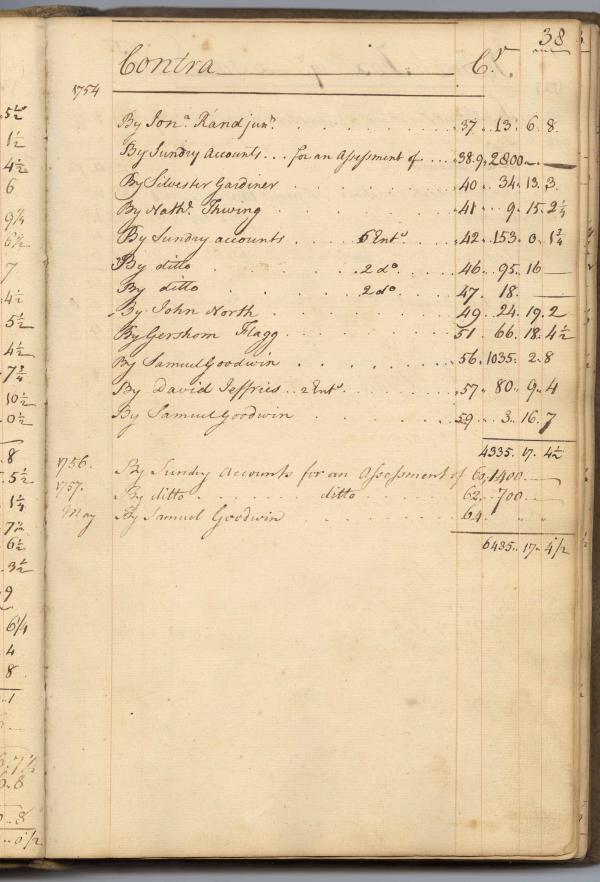 38
Contra Cr.
1754
By Jonª. Rand junr. 37 13 6 8
By Sundry Accounts for an Assessment of 38.9 2800
By Silvester Gardiner 40 34 13 3
By Nathl. Thwing 41 9 15 2¼
By Sundry accounts 6 Ents 42 153 0 1¾
By ditto 2 do 46 95 16
By ditto 2 do 47 18
By John North 49 24 19 2
By Gershom Flagg 51 66 18 4½
By Samuel Goodwin 56 1035 2 8
By David Jeffries 2 Ents 57 80 9 4
By Samuel Goodwin 59 3 16 7
4335 17 4½
1756. By Sundry Accounts for an Assessment of 60 1400
1757. By ditto ditto 62 700
May By Samuel Goodwin 64 " "
6435 17 4½